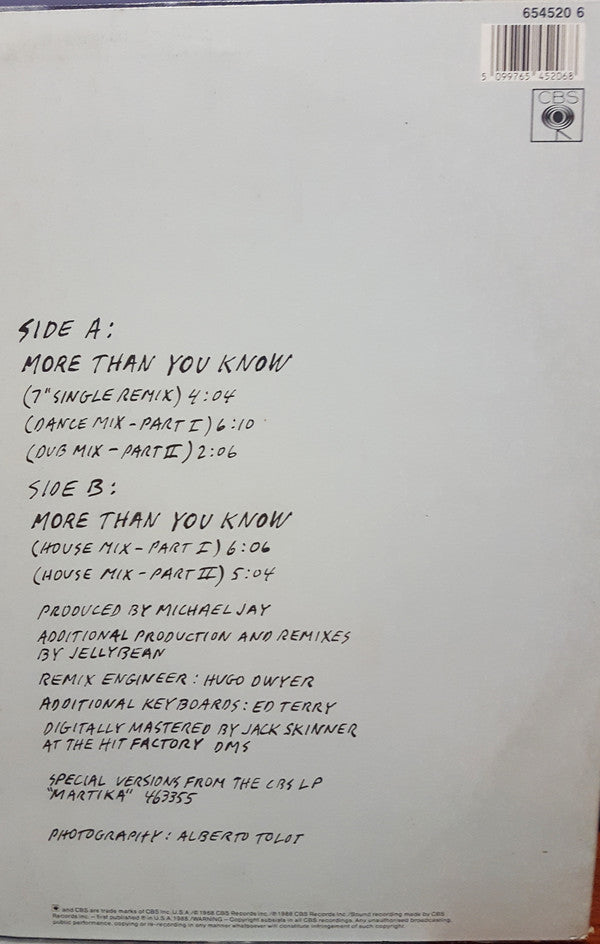 654520 6
5 099765 452068
CBS
SIDE A:
MORE THAN YOU KNOW
(7" SINGLE REMIX) 4:04
(DANCE MIX - PART I) 6:10
(DUB MIX - PART II) 2:06
SIDE B:
MORE THAN YOU KNOW
(HOUSE MIX - PART I) 6:06
(HOUSE MIX - PART II) 5:04
PRODUCED BY MICHAEL JAY
ADDITIONAL PRODUCTION AND REMIXES
BY JELLYBEAN
REMIX ENGINEER: HUGO DWYER
ADDITIONAL KEYBOARDS: ED TERRY
DIGITALLY MASTERED BY JACK SKINNER
AT THE HIT FACTORY DMS
SPECIAL VERSIONS FROM THE CBS LP
"MARTIKA" 463355
PHOTOGRAPHY: ALBERTO TOLOT
and CBS are trade marks of CBS Inc. U.S.A./℗ 1988 CBS Records Inc./© 1988 CBS Records Inc./Sound recording made by CBS
Records Inc. – first published ℗ in U.S.A. 1988./WARNING – Copyright subsists in all CBS recordings. Any unauthorised broadcasting,
public performance, copying or re-recording in any manner whatsoever will constitute infringement of such copyright.